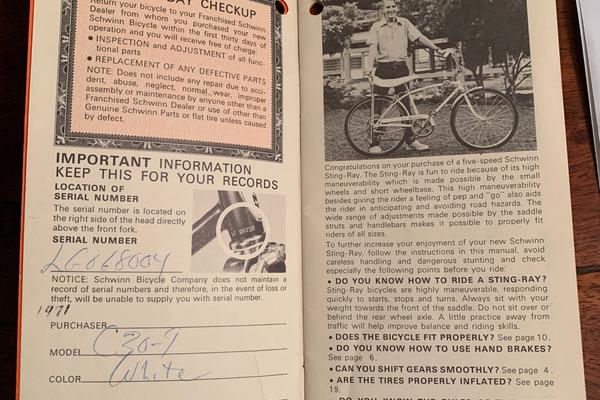 DAY CHECKUP
Return your bicycle to your Franchised Schwinn
Dealer from whom you purchased your new
Schwinn Bicycle within the first thirty days of
operation and you will receive free of charge:
• INSPECTION and ADJUSTMENT of all func-
tional parts
• REPLACEMENT OF ANY DEFECTIVE PARTS
NOTE: Does not include any repair due to acci-
dent, abuse, neglect, normal wear, improper
assembly or maintenance by anyone other than a
Franchised Schwinn Dealer or use of other than
Genuine Schwinn Parts or flat tire unless caused
by defect.
IMPORTANT INFORMATION
KEEP THIS FOR YOUR RECORDS
LOCATION OF
SERIAL NUMBER
The serial number is located on
the right side of the head directly
above the front fork.
SERIAL NUMBER
LG068004
NOTICE: Schwinn Bicycle Company does not maintain a
record of serial numbers and therefore, in the event of loss or
theft, will be unable to supply you with serial number.
1971
PURCHASER
MODEL C30-9
COLOR White
Congratulations on your purchase of a five-speed Schwinn
Sting-Ray. The Sting-Ray is fun to ride because of its high
maneuverability which is made possible by the small
wheels and short wheelbase. This high maneuverability
besides giving the rider a feeling of pep and "go" also aids
the rider in anticipating and avoiding road hazards. The
wide range of adjustments made possible by the saddle
struts and handlebars makes it possible to properly fit
riders of all sizes.
To further increase your enjoyment of your new Schwinn
Sting-Ray, follow the instructions in this manual, avoid
careless handling and dangerous stunting and check
especially the following points before you ride:
• DO YOU KNOW HOW TO RIDE A STING-RAY?
Sting-Ray bicycles are highly maneuverable, responding
quickly to starts, stops and turns. Always sit with your
weight towards the front of the saddle. Do not sit over or
behind the rear wheel axle. A little practice away from
traffic will help improve balance and riding skills.
• DOES THE BICYCLE FIT PROPERLY? See page 10.
• DO YOU KNOW HOW TO USE HAND BRAKES?
See page 6.
• CAN YOU SHIFT GEARS SMOOTHLY? See page 4.
• ARE THE TIRES PROPERLY INFLATED? See page
19.